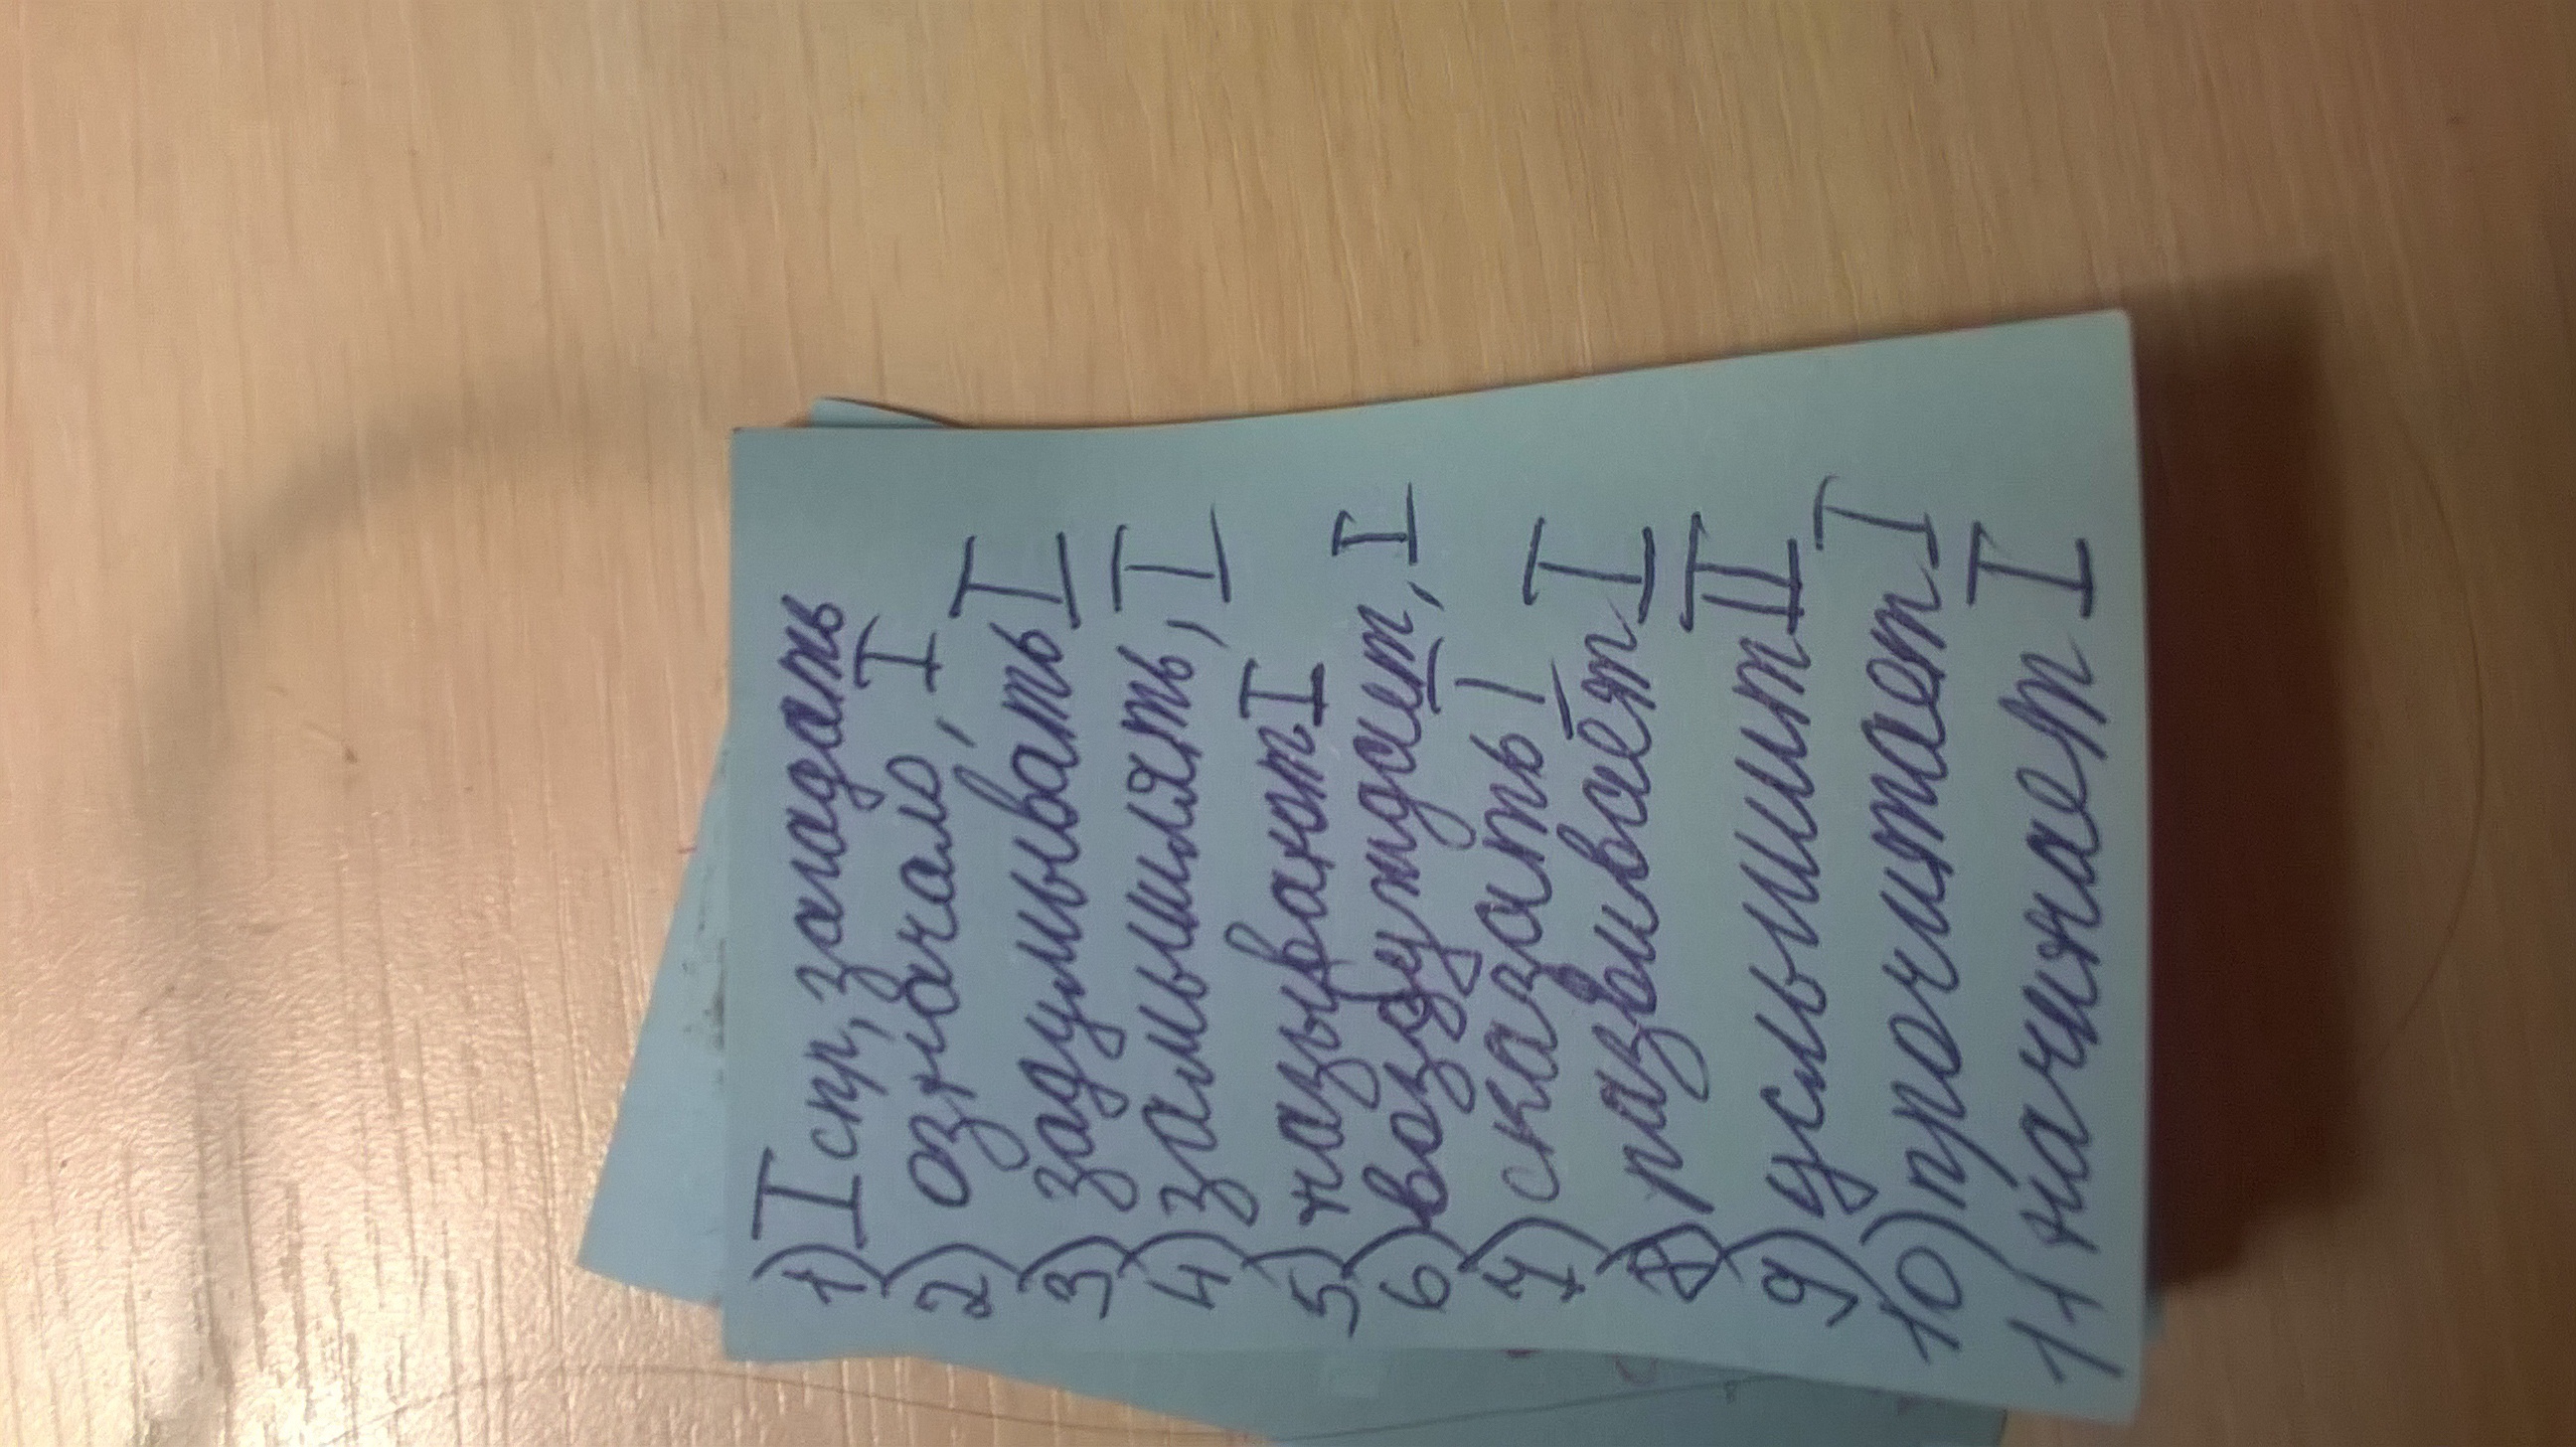 1) I спр, загадать
2) означало, I
3) задумывать I
4) замышлять, I
5) называют I
6) возбуждает, I
7) сказать I
8) развивает I
9) услышит II
10) прочитает I
11) начинает I